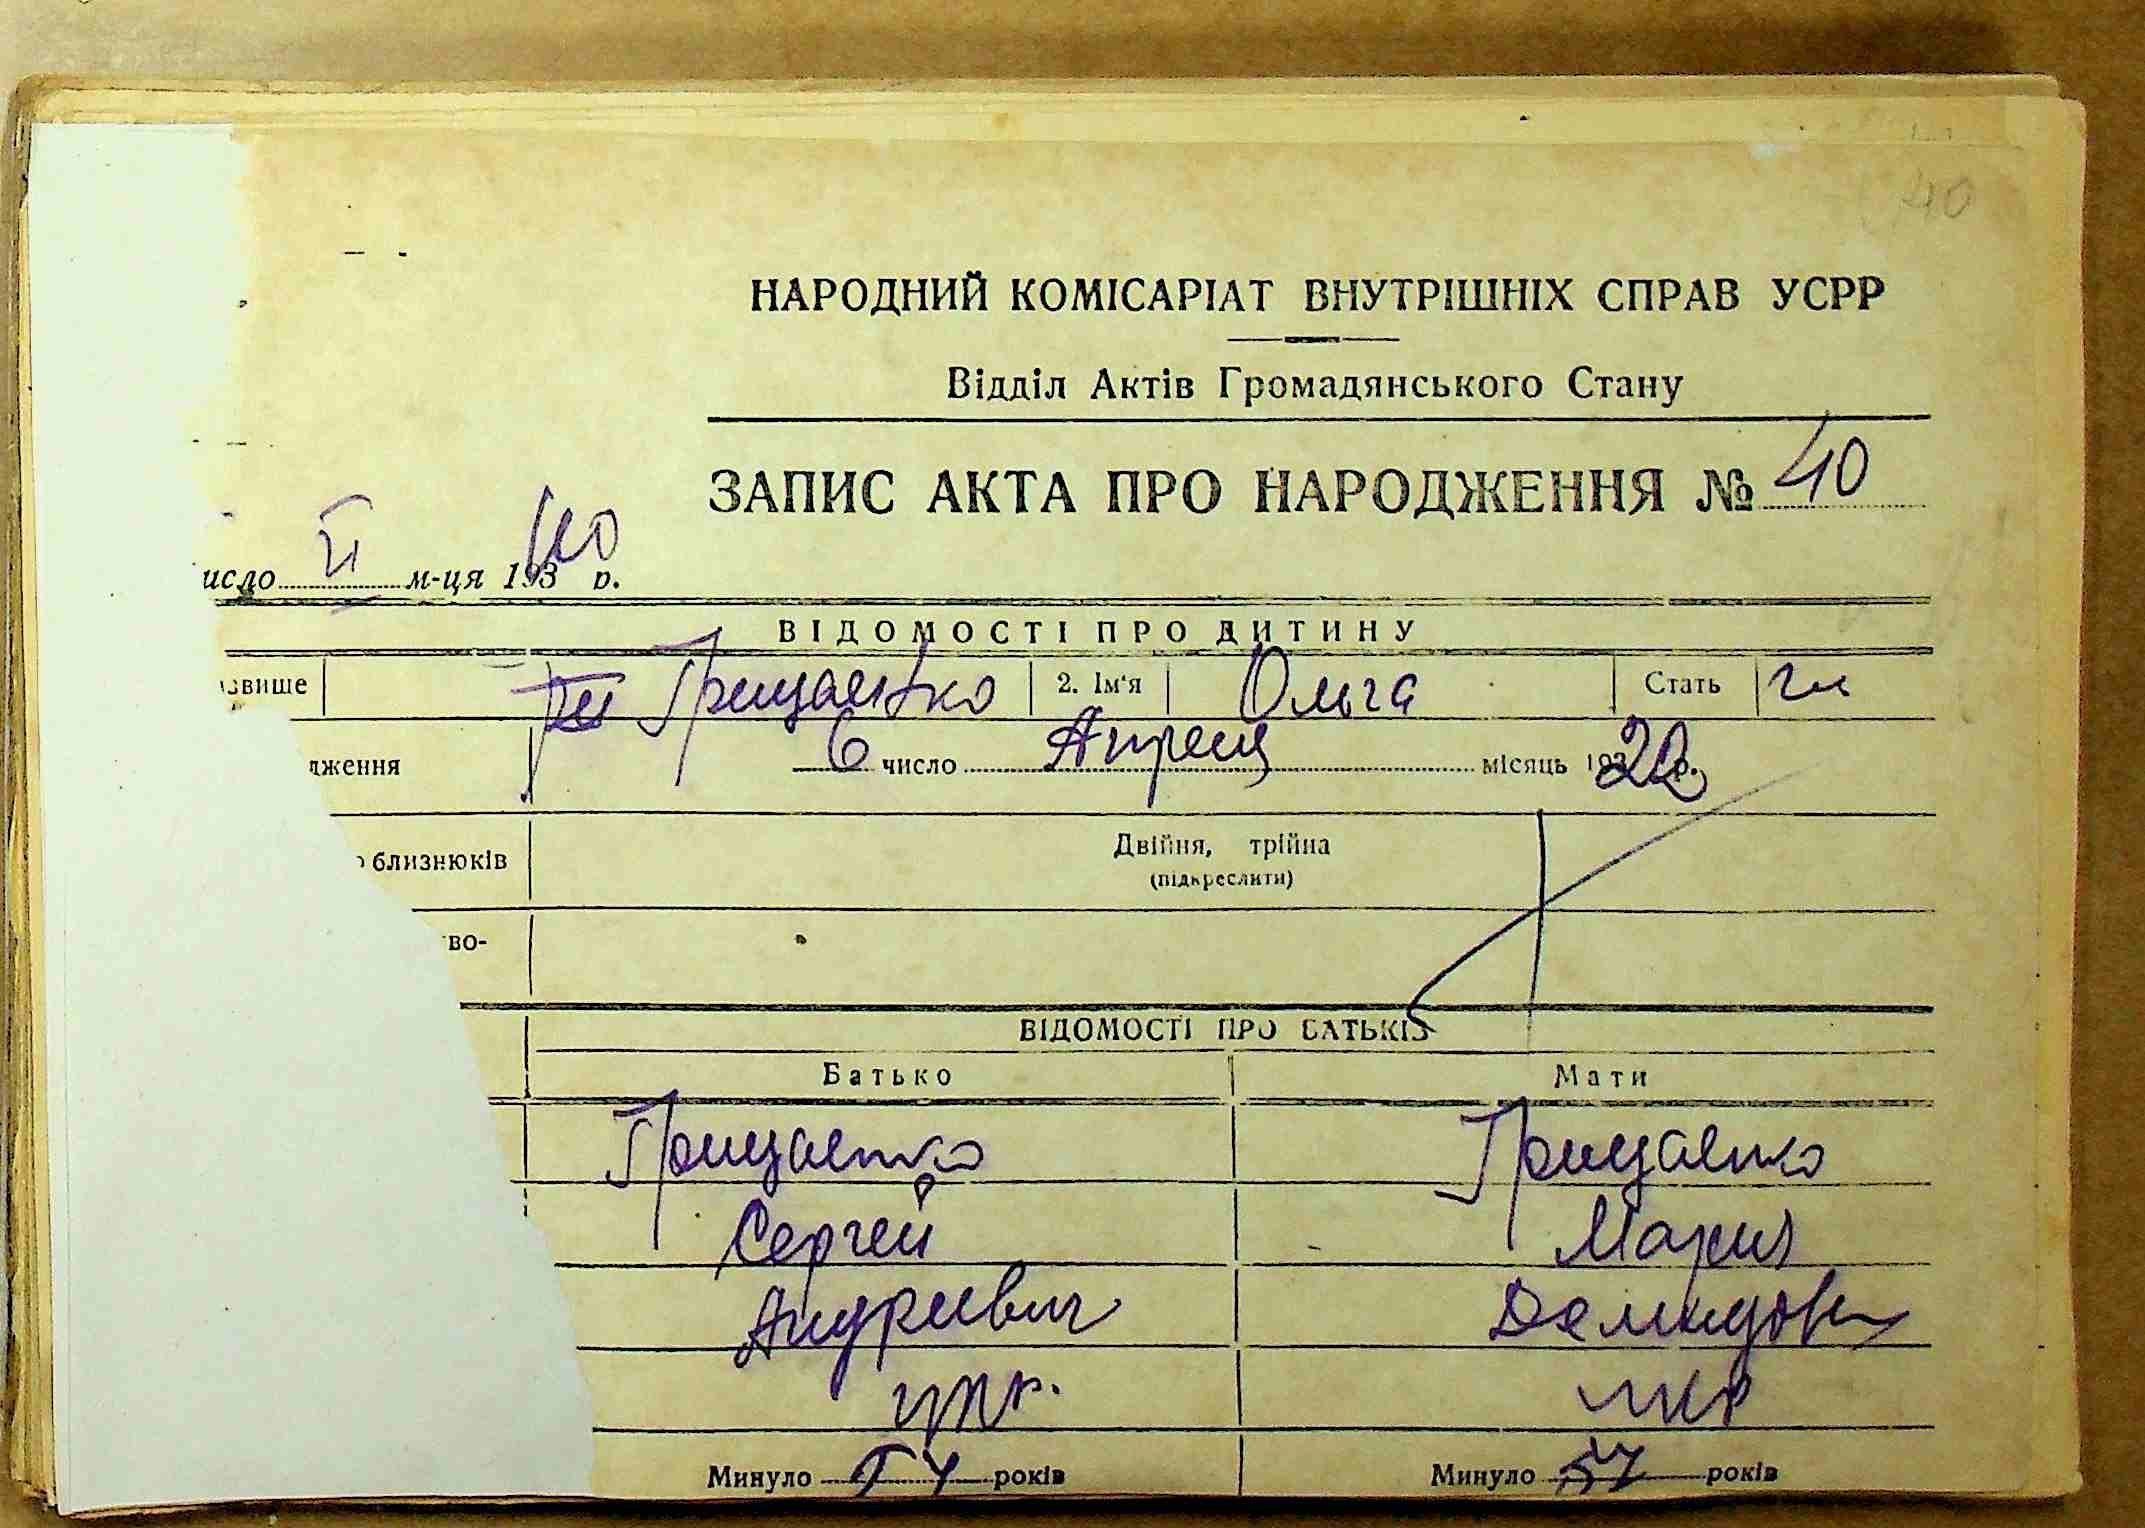 40
НАРОДНИЙ КОМІСАРІАТ ВНУТРІШНІХ СПРАВ УСРР
Відділ Актів Громадянського Стану
ЗАПИС АКТА ПРО НАРОДЖЕННЯ № 40
исло VI м-ця 193 40 р.
ВІДОМОСТІ ПРО ДИТИНУ
ізвище Грищаенко 2. Ім'я Ольга Стать
дження 6 число Апреля місяць 193 р.
о близнюків Двійня, трійна
(підкреслити)
во-
ВІДОМОСТІ ПРО БАТЬКІВ
Батько Мати
Грищаенко Грищаенко
Сергей Мария
Андреевич Демидовн
укр. укр
Минуло років Минуло років